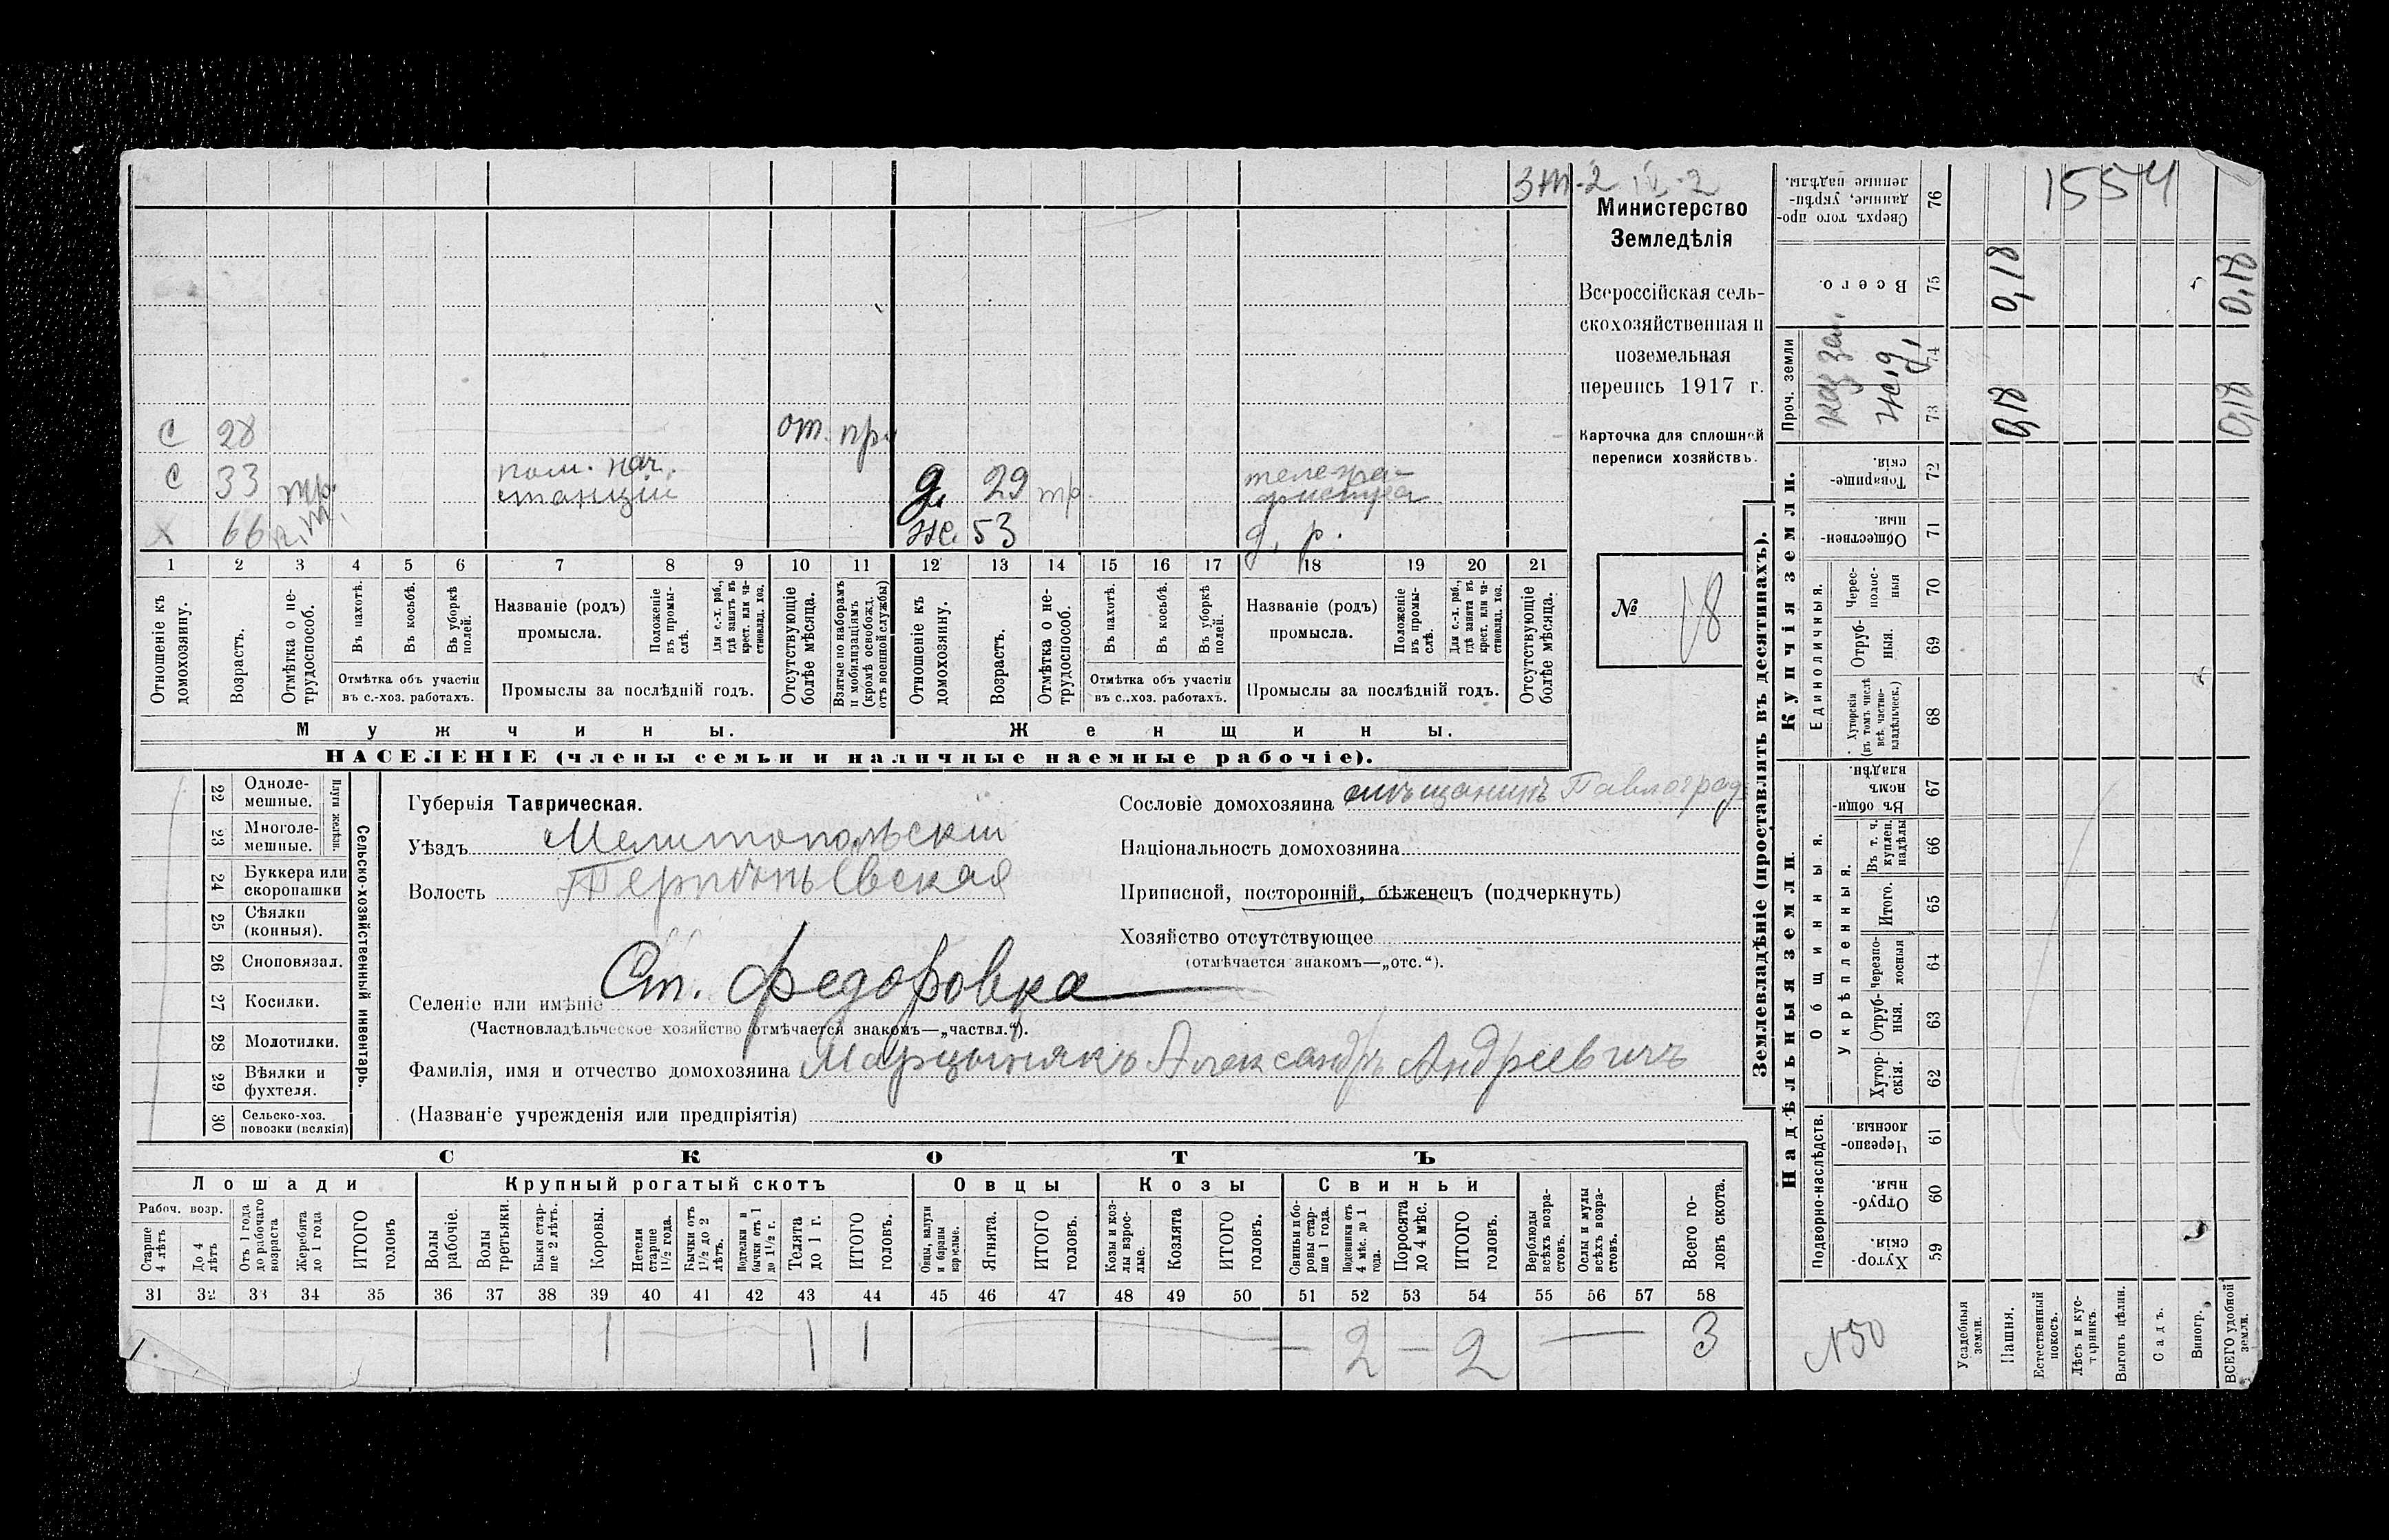 3т-2 IV-2
1554
Министерство
Земледѣлія
Всероссійская сель-
скохозяйственная и
поземельная
перепись 1917 г.
Карточка для сплошной
переписи хозяйствъ.
№ 18
С 28 от. пр.
С 33 тр. пом. нач. станціи д. 29 тр. телегра-
фистка
Х 66 ж. 53 д. р.
1 2 3 4 5 6 7 8 9 10 11 12 13 14 15 16 17 18 19 20 21
Отношеніе къ домохозяину.
Возрастъ.
Отмѣтка о не-трудоспособ.
Въ пахотѣ.
Въ косьбѣ.
Въ уборкѣ полей.
Отмѣтка объ участіи
въ с.-хоз. работахъ.
Названіе (родъ)
промысла.
Положеніе въ промы-слѣ.
Для с.-х. раб., гдѣ занятъ въ крест. или ча-стновлад. хоз.
Промыслы за послѣдній годъ.
Отсутствующіе болѣе мѣсяца.
Взятые по наборамъ и мобилизаціямъ (кромѣ освобожд. отъ военной службы)
Отношеніе къ домохозяину.
Возрастъ.
Отмѣтка о не-трудоспособ.
Въ пахотѣ.
Въ косьбѣ.
Въ уборкѣ полей.
Отмѣтка объ участіи
въ с..хоз. работахъ.
Названіе (родъ)
промысла.
Положеніе въ промы-слѣ.
Для с.-х. раб., гдѣ занята въ крест. или ча-стновлад. хоз.
Промыслы за послѣдній годъ.
Отсутствующіе болѣе мѣсяца.
Мужчины. Женщины.
НАСЕЛЕНІЕ (члены семьи и наличные наемные рабочіе).
Сельско-хозяйственный инвентарь.
Плуги желѣзн.
22 Одноле-мешные.
23 Многоле-мешные.
24 Буккера или скоропашки
25 Сѣялки (конныя).
26 Сноповязал.
27 Косилки.
28 Молотилки.
29 Вѣялки и фухтеля.
30 Сельско-хоз. повозки (всякія)
Губернія Таврическая.
Уѣздъ Мелитопольскій
Волость Терпѣньевская
Селеніе или имѣніе Ст. Федоровка
(Частновладѣльческое хозяйство отмѣчается знакомъ—„частвл.“).
Фамилія, имя и отчество домохозяина Марцынякъ Александръ Андреевичъ
(Названіе учрежденія или предпріятія)
Сословіе домохозяина мѣщанинъ Павлоград.
Національность домохозяина
Приписной, посторонній, бѣженецъ (подчеркнуть)
Хозяйство отсутствующее
(отмѣчается знакомъ—„отс.“).
СКОТЪ
Лошади Крупный рогатый скотъ Овцы Козы Свиньи
Рабоч. возр.
Старше 4 лѣтъ
До 4 лѣтъ
Отъ 1 года до рабочаго возраста
Жеребята до 1 года
ИТОГО головъ
Волы рабочіе.
Волы третьяки.
Быки стар-ше 2 лѣтъ.
Коровы.
Нетели старше 1½ года.
Бычки отъ 1½ до 2 лѣтъ.
Подтелки и бычки отъ 1 до 1½ г.
Телята до 1 г.
ИТОГО головъ.
Овцы, валухи и бараны взрослые.
Ягнята.
ИТОГО головъ.
Козы и коз-лы взрос-лые.
Козлята
ИТОГО головъ.
Свиньи и бо-ровы стар-ше 1 года.
Подсвинки отъ 4 мѣс. до 1 года.
Поросята до 4 мѣс.
ИТОГО головъ.
Верблюды всѣхъ возра-стовъ.
Ослы и мулы всѣхъ возра-стовъ.
Всего го-ловъ скота.
31 32 33 34 35 36 37 38 39 40 41 42 43 44 45 46 47 48 49 50 51 52 53 54 55 56 57 58
1 1 1 2 2 3
Землевладѣніе (проставлять въ десятинахъ).
Надѣльныя земли.
Купчія земли.
Проч. земли
каз. зем.
ж. д.
Подворно-наслѣдств.
Общинныя.
Укрѣпленныя.
Единоличныя.
Сверхъ того про-данные, укрѣп-ленные надѣлы. 76
Всего. 75
74
73
Товарище-скія. 72
Обществен-ныя. 71
Черес-полос-ныя 70
Отруб-ныя. 69
Хуторскія (въ томъ числѣ всѣ частно-владѣльческ.) 68
Въ общи-номъ владѣн. 67
Въ т. ч. куплен. надѣлы 66
Итого. 65
Черезпо-лосныя 64
Отруб-ныя. 63
Хутор-скія. 62
Черезпо-лосныя 61
Отруб-ныя. 60
Хутор-скія. 59
0,18 0,18
0,18 0,18
№ 50
Усадебныя земли.
Пашня.
Естественный покосъ.
Лѣсъ и кус-тарникъ.
Выгонъ цѣлин.
Садъ.
Виногр.
ВСЕГО удобной земли.